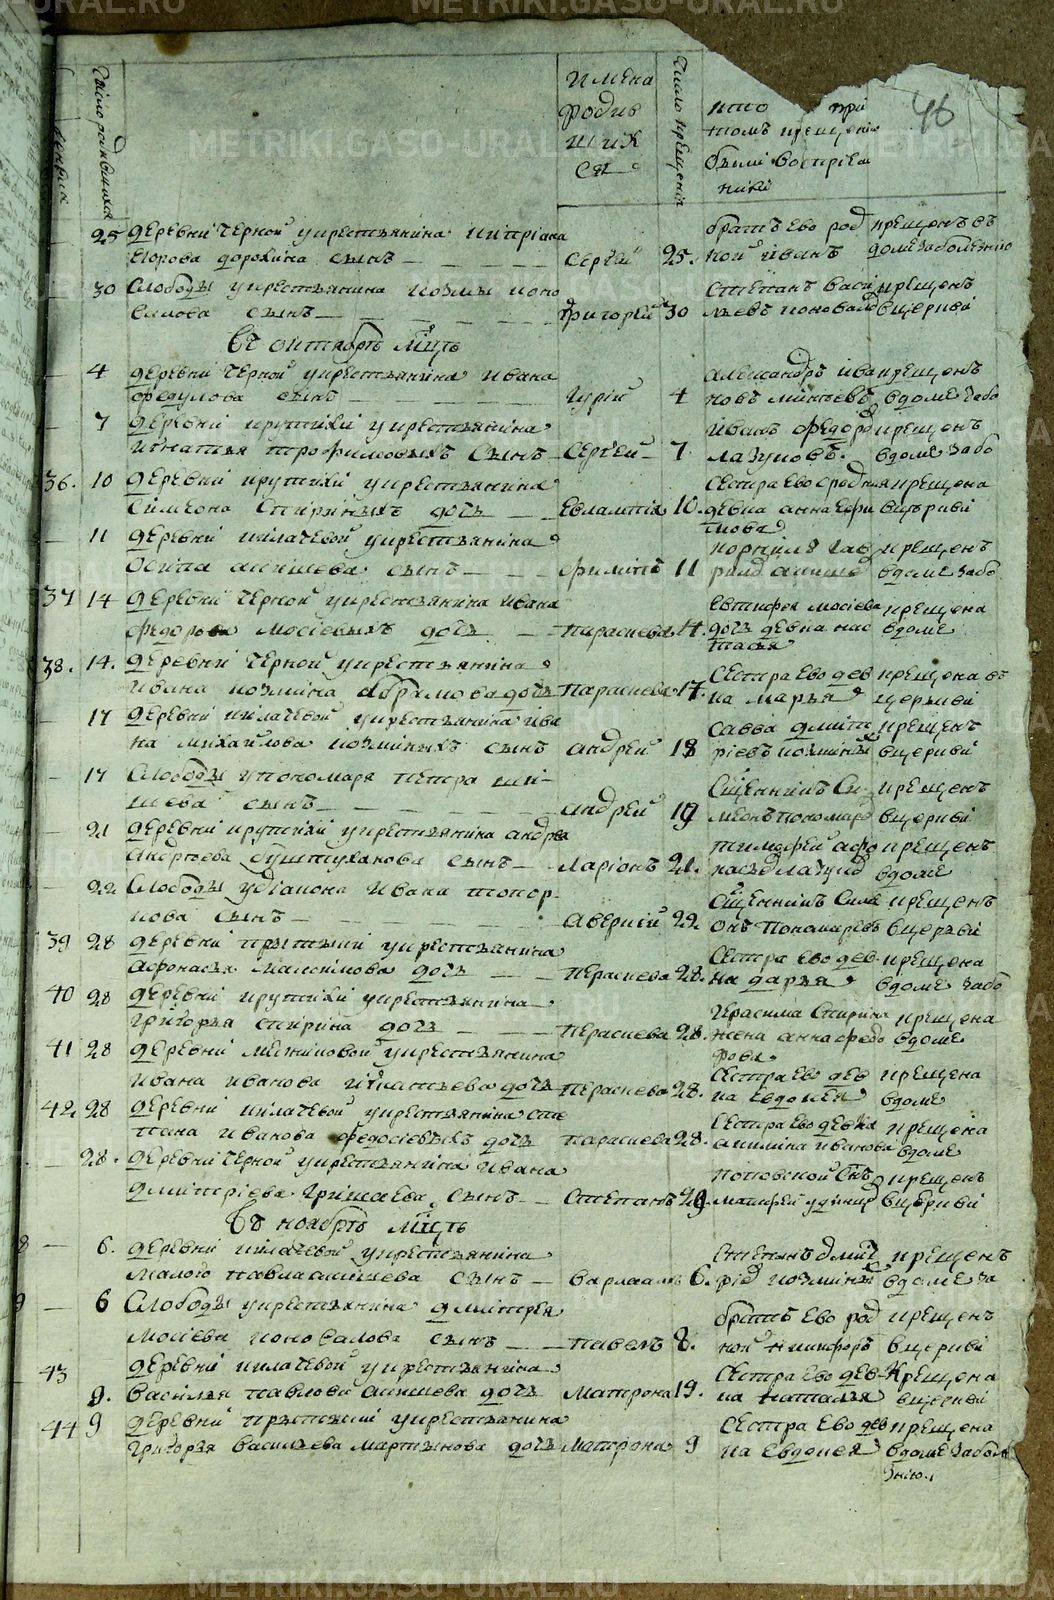 METRIKI.GASO-URAL.RU
число родившихся
имена
родив
ших
ся
число крещенія
кто при
томъ крещеніи
были воспріем
ники
46
25 деревни черной у крестьянина кипріана
егорова дорохина сынъ Сергей 25. братъ ево род ной иванъ крещенъ въ доме заболезнию
30 Слободы у крестьянина козмы коно
валова сынъ григорей 30 Степанъ васи льевъ коновалов крещенъ вцеркви
въ октябре мцъ
4 деревни черной у крестьянина ивана
федулова сынъ Гурій 4 александръ ива новъ крещенъ вдоме забо
7 деревни крутихи у крестьянина
игнатья трофимовыхъ сынъ Сергей 7 иванъ федор лазуновъ. крещенъ вдоме забо
36. 10 деревни крутихи у крестьянина
Симеона Спириныхъ дочь Евлампія 10. сестра Ево сродная девка анна крещена вцеркви
11 деревни килачевой у крестьянина
осипа анишева сынъ филипъ 11 корнило гав рилов анише крещенъ вдоме забо
37 14 деревни черной у крестьянина ивана
федорова мосіевыхъ дочь параскева 14. Евтифея мосіева дочь девка нас тасья крещена вдоме
38. 14. деревни черной у крестьянина
ивана козмина абрамова дочь параскева 17. сестра Ево дев ка марья крещена въ церкви
17 деревни килачевой у крестьянина ива
на михайлова козминыхъ сынъ андрей 18 савва дмит ріевъ козминых крещенъ вцеркви
17 Слободы у пономаря петра ки
шева сынъ андрей 19 Сщенникъ Си меонъ пономарев крещенъ вцеркви
21 деревни крутихи у крестьянина андрея
андреева буштуханова сынъ Ларіонъ 21. тимофей афо насьев лазунов крещенъ вдоме
22 Слободы у діакона ивана топор
кова сынъ аверкій 22. Сщенникъ Симе онъ пономаревъ крещенъ вцеркви
39 28 деревни у крестьянина
афонасья максимова дочь параскева 28. сестра ево дев ка дарья крещена вдоме забо
40 28 деревни крутихи у крестьянина
григорья спирина дочь параскева 28. герасима спирина жена анна федо рова крещена вдоме
41 28 деревни у крестьянина
ивана иванова игнатьева дочь параскева 28. сестра Ево дев ка Евдокея крещена вдоме
42. 28 деревни килачевой у крестьянина сте
пана иванова федосіевыхъ дочь параскева 28. сестра Ево девка акилина иванова крещена вдоме
28. деревни черной у крестьянина ивана
дмитріева гришаева сынъ Степанъ 29. поповской снъ матфей удинцов крещенъ вцеркви
въ ноябре мцъ
8 6. деревни килачевой у крестьянина
малого павла анишева сынъ варлаамъ 6. Степанъ дмит ріев козминых крещенъ вдоме за
9 6 Слободы у крестьянина дмитрея
мосіева коновалова сынъ павелъ 8. братъ ево род ной никифоръ крещенъ вцеркви
43 9. деревни килачевой у крестьянина
василья павлова анишева дочь матрона 19. сестра Ево дев ка наталья крещена вцеркви
44 9 деревни у крестьянина
григорья васильева мартынова дочь матрона 9 сестра Ево дев ка Евдокея крещена вдоме заболе знію.